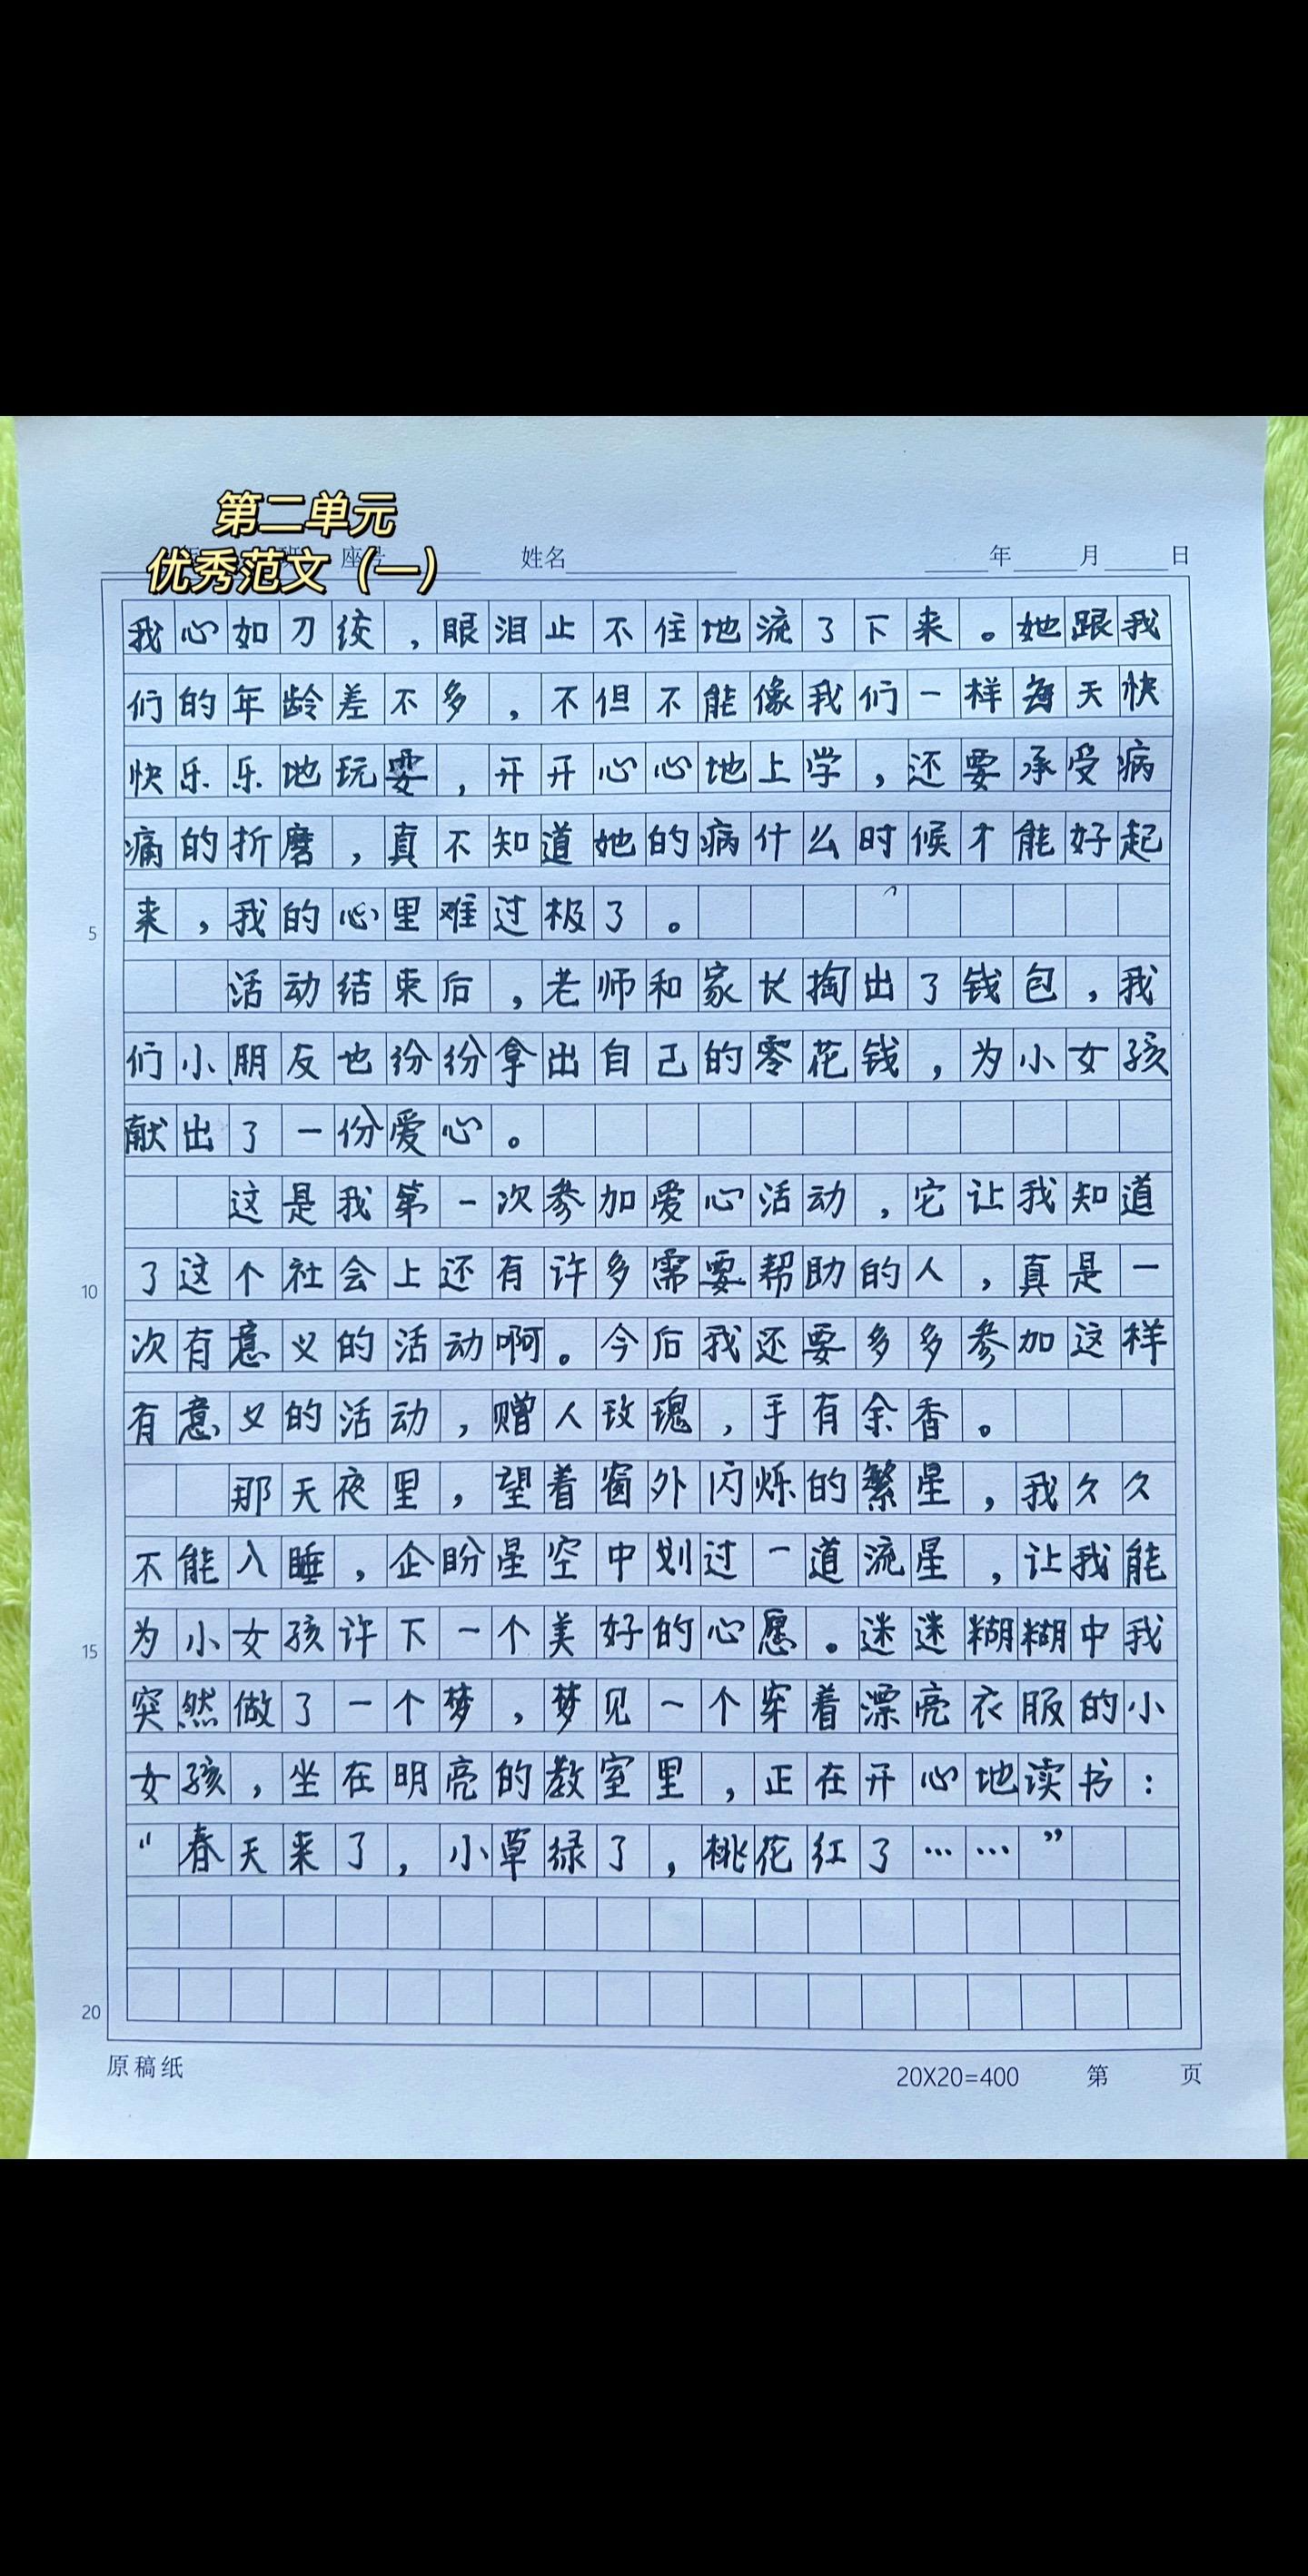 第二单元
优秀范文（一）
座号 姓名 年 月 日
我心如刀绞，眼泪止不住地流了下来。她跟我
们的年龄差不多，不但不能像我们一样每天快
快乐乐地玩耍，开开心心地上学，还要承受病
痛的折磨，真不知道她的病什么时候才能好起
5 来，我的心里难过极了。
活动结束后，老师和家长掏出了钱包，我
们小朋友也纷纷拿出自己的零花钱，为小女孩
献出了一份爱心。
这是我第一次参加爱心活动，它让我知道
10 了这个社会上还有许多需要帮助的人，真是一
次有意义的活动啊。今后我还要多多参加这样
有意义的活动，赠人玫瑰，手有余香。
那天夜里，望着窗外闪烁的繁星，我久久
不能入睡，企盼星空中划过一道流星，让我能
15 为小女孩许下一个美好的心愿。迷迷糊糊中我
突然做了一个梦，梦见一个穿着漂亮衣服的小
女孩，坐在明亮的教室里，正在开心地读书：
“春天来了，小草绿了，桃花红了……”
20
原稿纸 20X20=400 第 页